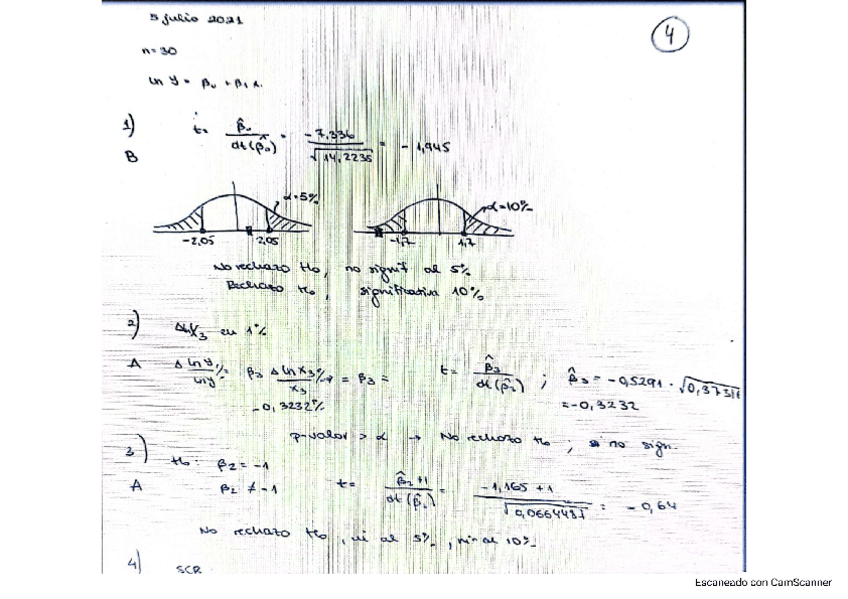 5 julio 2021
4
n=30
ln y = β₀ + β₁ x.
1)
t = β̂₀ / dt(β̂₀) = -7,336 / √14,2235 = -1,945
B
α=5%
α=10%
-2,05 2,05
-1,7 1,7
No rechazo H₀, no signif al 5%
Rechazo H₀, significativa 10%
2)
en 1%
A
β₃ Δ ln X₃ % / X₃ = β₃ =
t = β̂₃ / dt(β̂₃) ; β̂₃ = -0,5291 ·
-0,3232%
= -0,3232
p-valor > α → No rechazo H₀ ; no sign.
3)
H₀: β₂ = -1
A
β₂ ≠ -1
t = β̂₂ +1 / dt(β̂₂) = -1,165 + 1 / √0,0664487 = -0,64
No rechazo H₀, ni al 5%, ni al 10%
4)
SCR
Escaneado con CamScanner